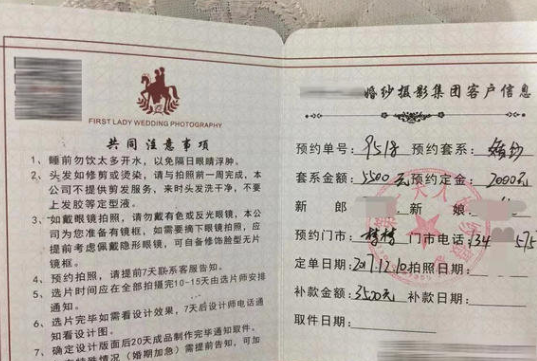 FIRST LADY WEDDING PHOTOGRAPHY
共同注意事项
1、睡前勿饮太多开水，以免隔日眼睛浮肿。
2、头发如修剪或烫染，请与拍照前一周完成，本
公司不提供剪发服务，来时头发洗干净，不要
上发胶等定型液。
3、如戴眼镜拍照，请勿戴有色或反光眼镜，本公
司为您准备有镜框，如需要摘下眼镜拍照，应
提前考虑佩戴隐形眼镜，可自备修饰脸型无片
镜框。
4、预约拍照，请提前7天联系客服告知。
5、选片时间应在全部拍摄完10-15天由选片师安排
通知。
6、选片完毕如需看设计效果，7天后设计师电话通
知看设计图。
7、确定设计版面后20天成品制作完毕通知取件。
情况（婚期加急）需提前告知，可加
婚纱摄影集团客户信息
预约单号：9518 预约套系：婚纱
套系金额：5500元 预约定金：2000元
新郎 新娘
预约门市：门市电话：134 575
定单日期：2017.12.10 拍照日期：
补款金额：3500元 补款日期：
取件日期：